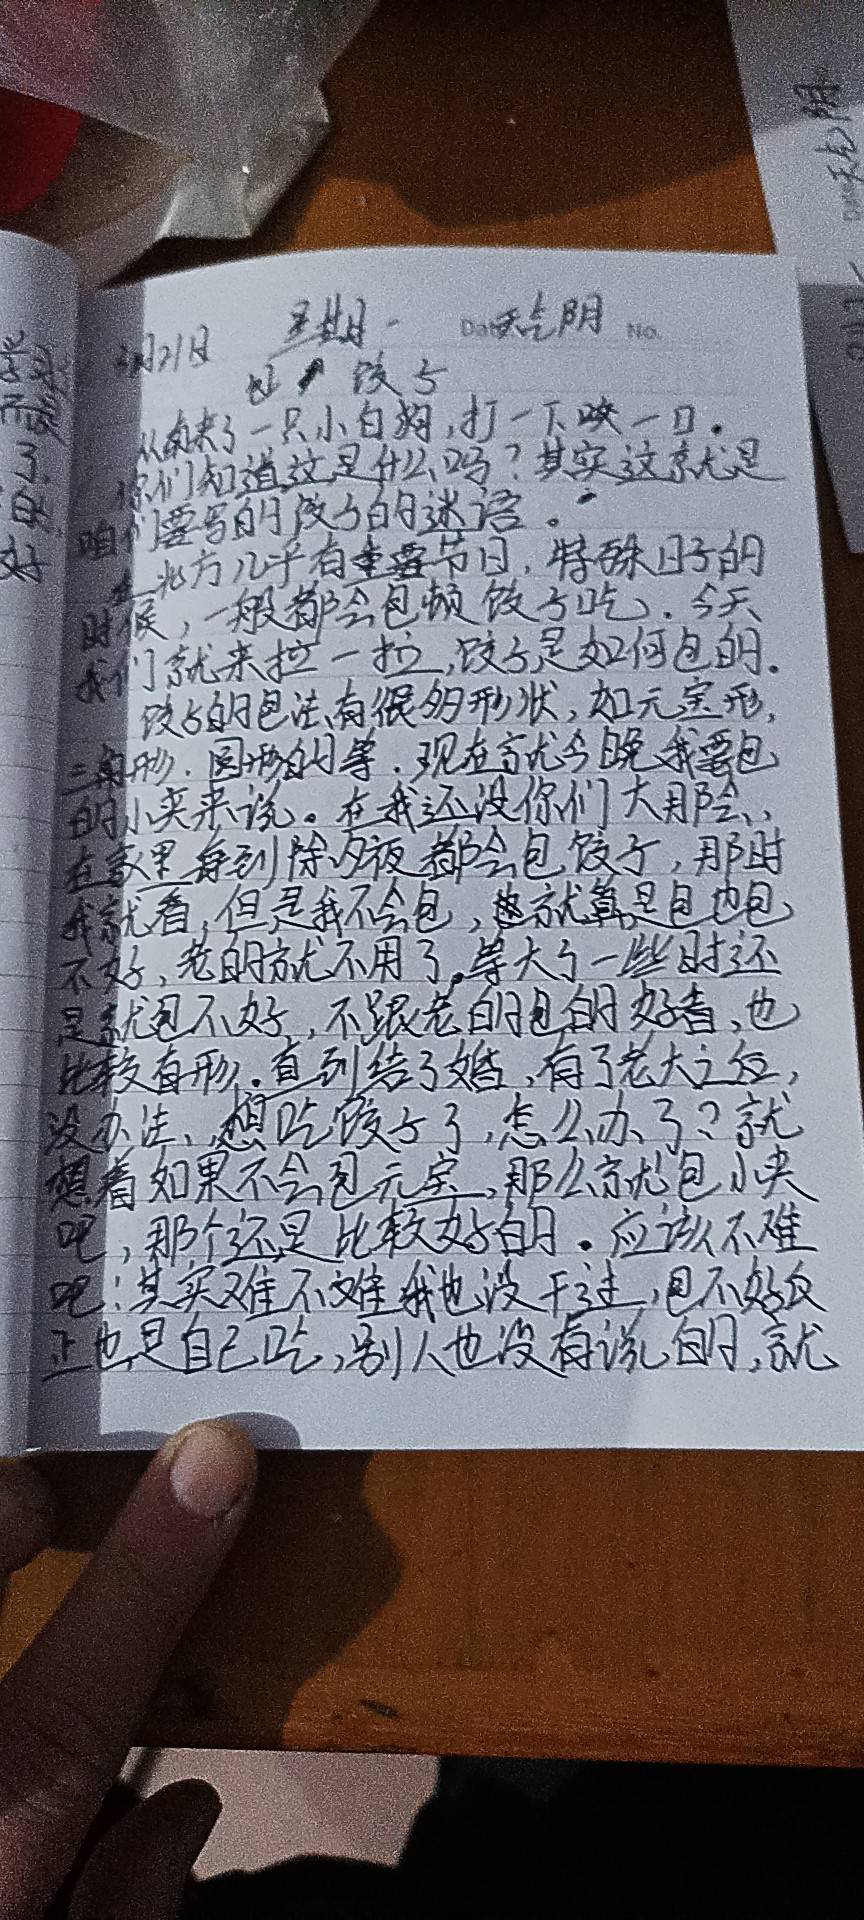 2月21日 星期一 Da 天气阴 No.
包 饺子
从南来了一只小白狗,打一下咬一口.
你们知道这是什么吗?其实这就是
咱们要写的饺子的迷语。
在北方几乎有重要节日,特殊日子的
时候,一般都会包顿饺子吃.今天
我们就来拉一拉,饺子是如何包的.
饺子的包法有很多形状,如元宝形,
三角形.圆形的等.现在就今晚我要包
的小夹来说。在我还没你们大那会,
在家里每到除夕夜都会包饺子,那时
我就看,但是我不会包,就算是包也包
不好,老的就不用了.等大了一些时还
是就包不好,不跟老的包的好看,也
比较有形.直到结了婚,有了老大之后,
没办法,想吃饺子了,怎么办了?就
想着如果不会包元宝,那么就包小夹
吧,那个还是比较好的.应该不难
吧!其实难不难我也没干过,包不好反
正也是自己吃,别人也没有说的,就
而
了
好
天气阴